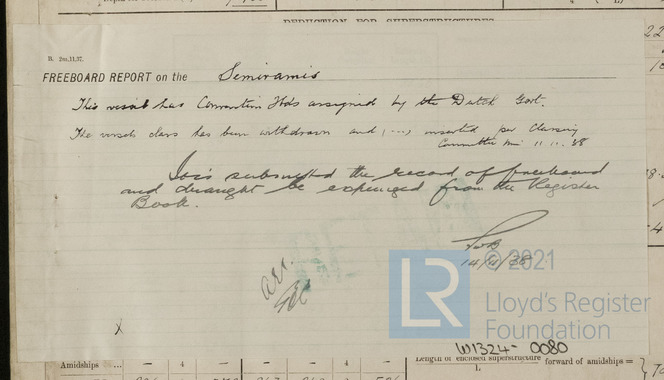 DEDUCTION FOR SUPERSTRUCTURES
R. 2m.11,37.
FREEBOARD REPORT on the Semiramis
This vessel has Convention Fbds assigned by the Dutch Govt.
The vessels class has been withdrawn and (...) inserted per Classing
Committee min 11.11.38
It is submitted the record of freeboard
and draught be expunged from the Register
Book.
14/11/38
© 2021
LR
Lloyd's Register
Foundation
X
W1324-0080
Amidships ... — 4 — — 4 —
Length of enclosed superstructure forward of amidships =
L